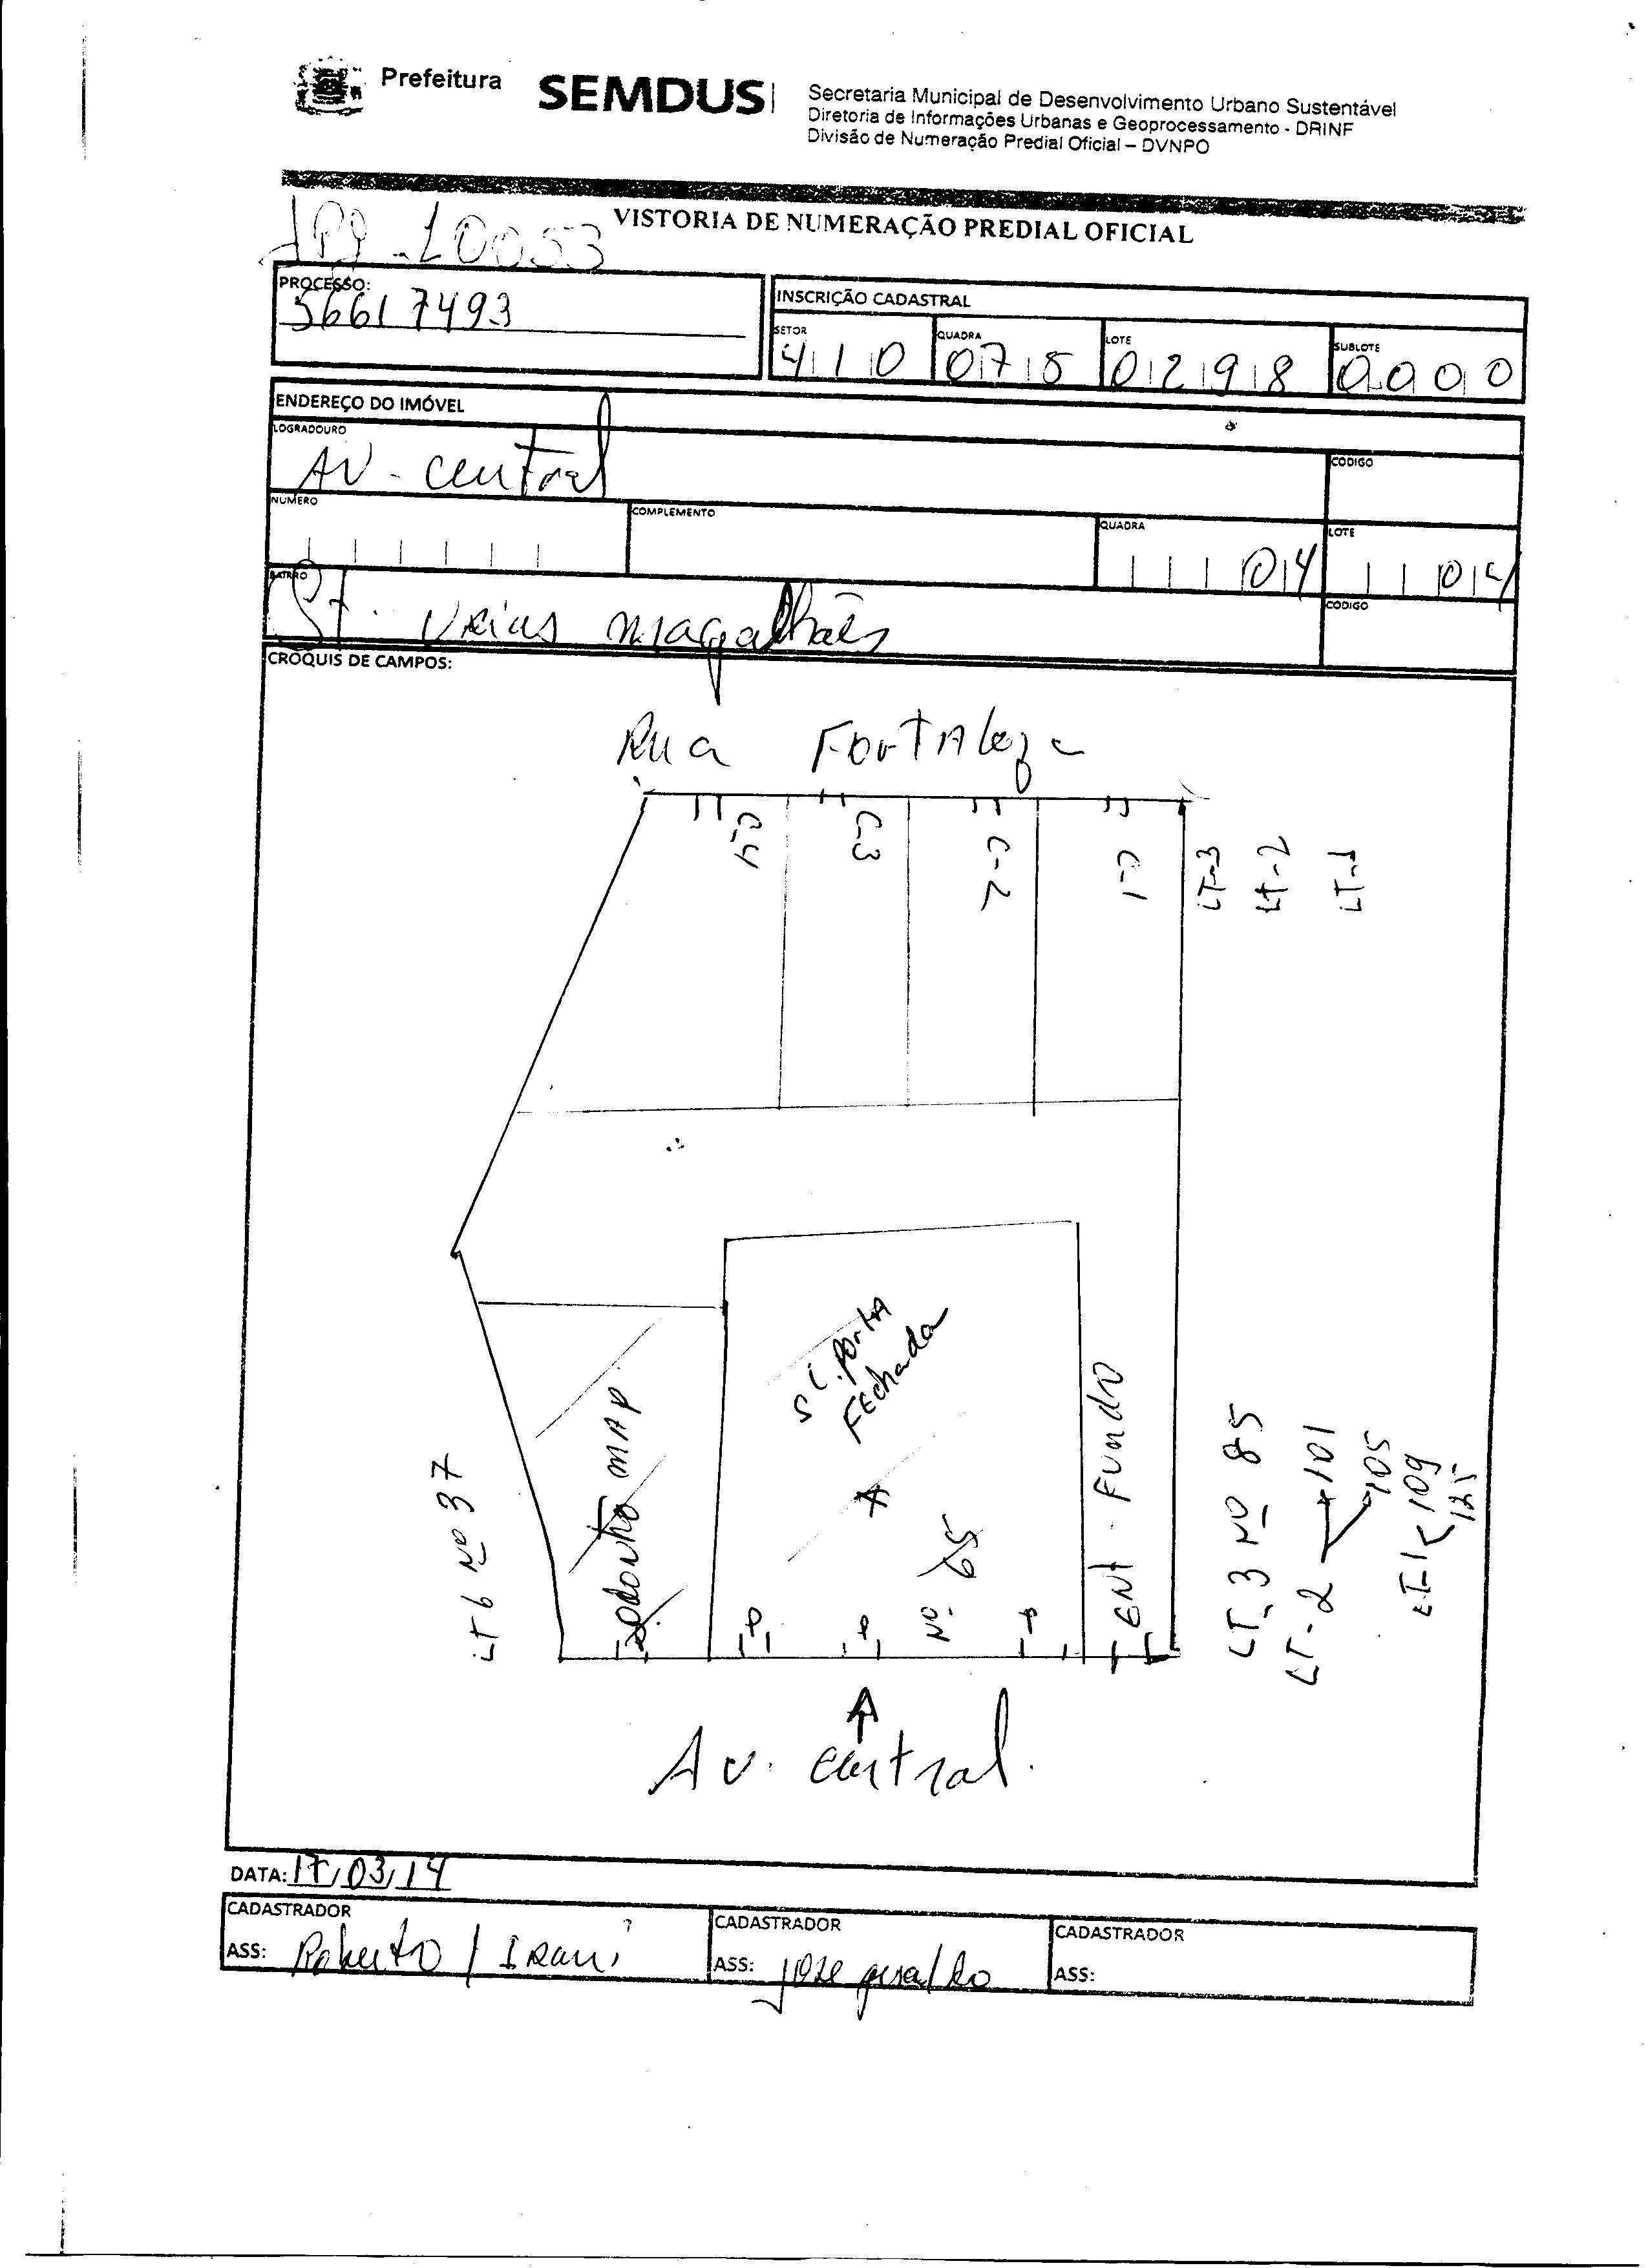 Prefeitura
SEMDUS
Secretaria Municipal de Desenvolvimento Urbano Sustentável
Diretoria de Informações Urbanas e Geoprocessamento - DRINF
Divisão de Numeração Predial Oficial – DVNPO
VISTORIA DE NUMERAÇÃO PREDIAL OFICIAL
10053
PROCESSO:
56617493
INSCRIÇÃO CADASTRAL
SETOR
410
QUADRA
078
LOTE
0298
SUBLOTE
0000
ENDEREÇO DO IMÓVEL
LOGRADOURO
AV - central
CODIGO
NUMERO
COMPLEMENTO
QUADRA
04
LOTE
04
BAIRRO
St. Urias magalhães
CODIGO
CROQUIS DE CAMPOS:
Rua Fortaleza
C-4
C-3
C-2
C-1
LT-3
LT-2
LT-1
SC. PORTA
FEchada
A
Nº 65
odonto MAP
ENT. Fundo
LT 6 Nº 37
LT. 3 Nº 85
LT - 2 101
105
LT-1 < 109
125
Av. central.
DATA: 17/03/14
CADASTRADOR
ASS: Roberto / Irani
CADASTRADOR
ASS: jose geraldo
CADASTRADOR
ASS: